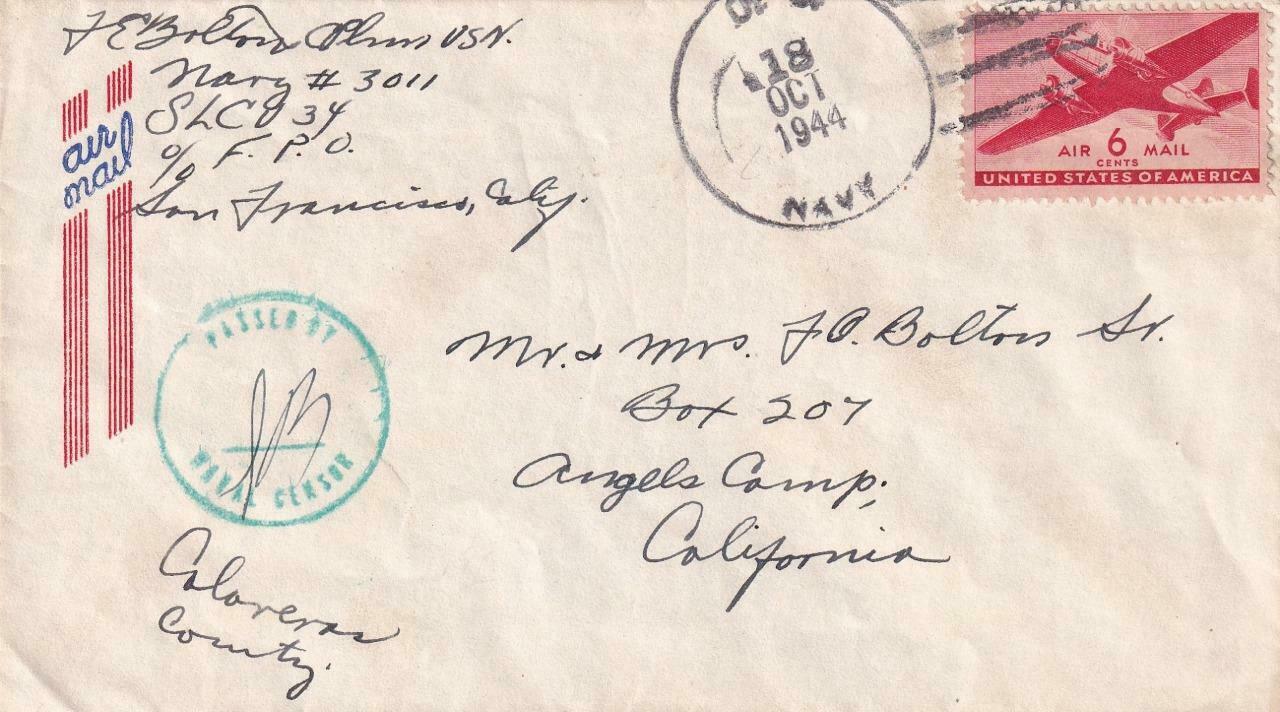 J E Bolton Phm USN.
Navy # 3011
SLCU 34
c/o F. P. O.
San Francisco, Calif.
air
mail
18
OCT
1944
NAVY
AIR 6 MAIL
CENTS
UNITED STATES OF AMERICA
PASSED BY
NAVAL CENSOR
Mr. & Mrs. J. C. Bolton Sr.
Box 207
Angels Camp,
California
Calaveras
County.